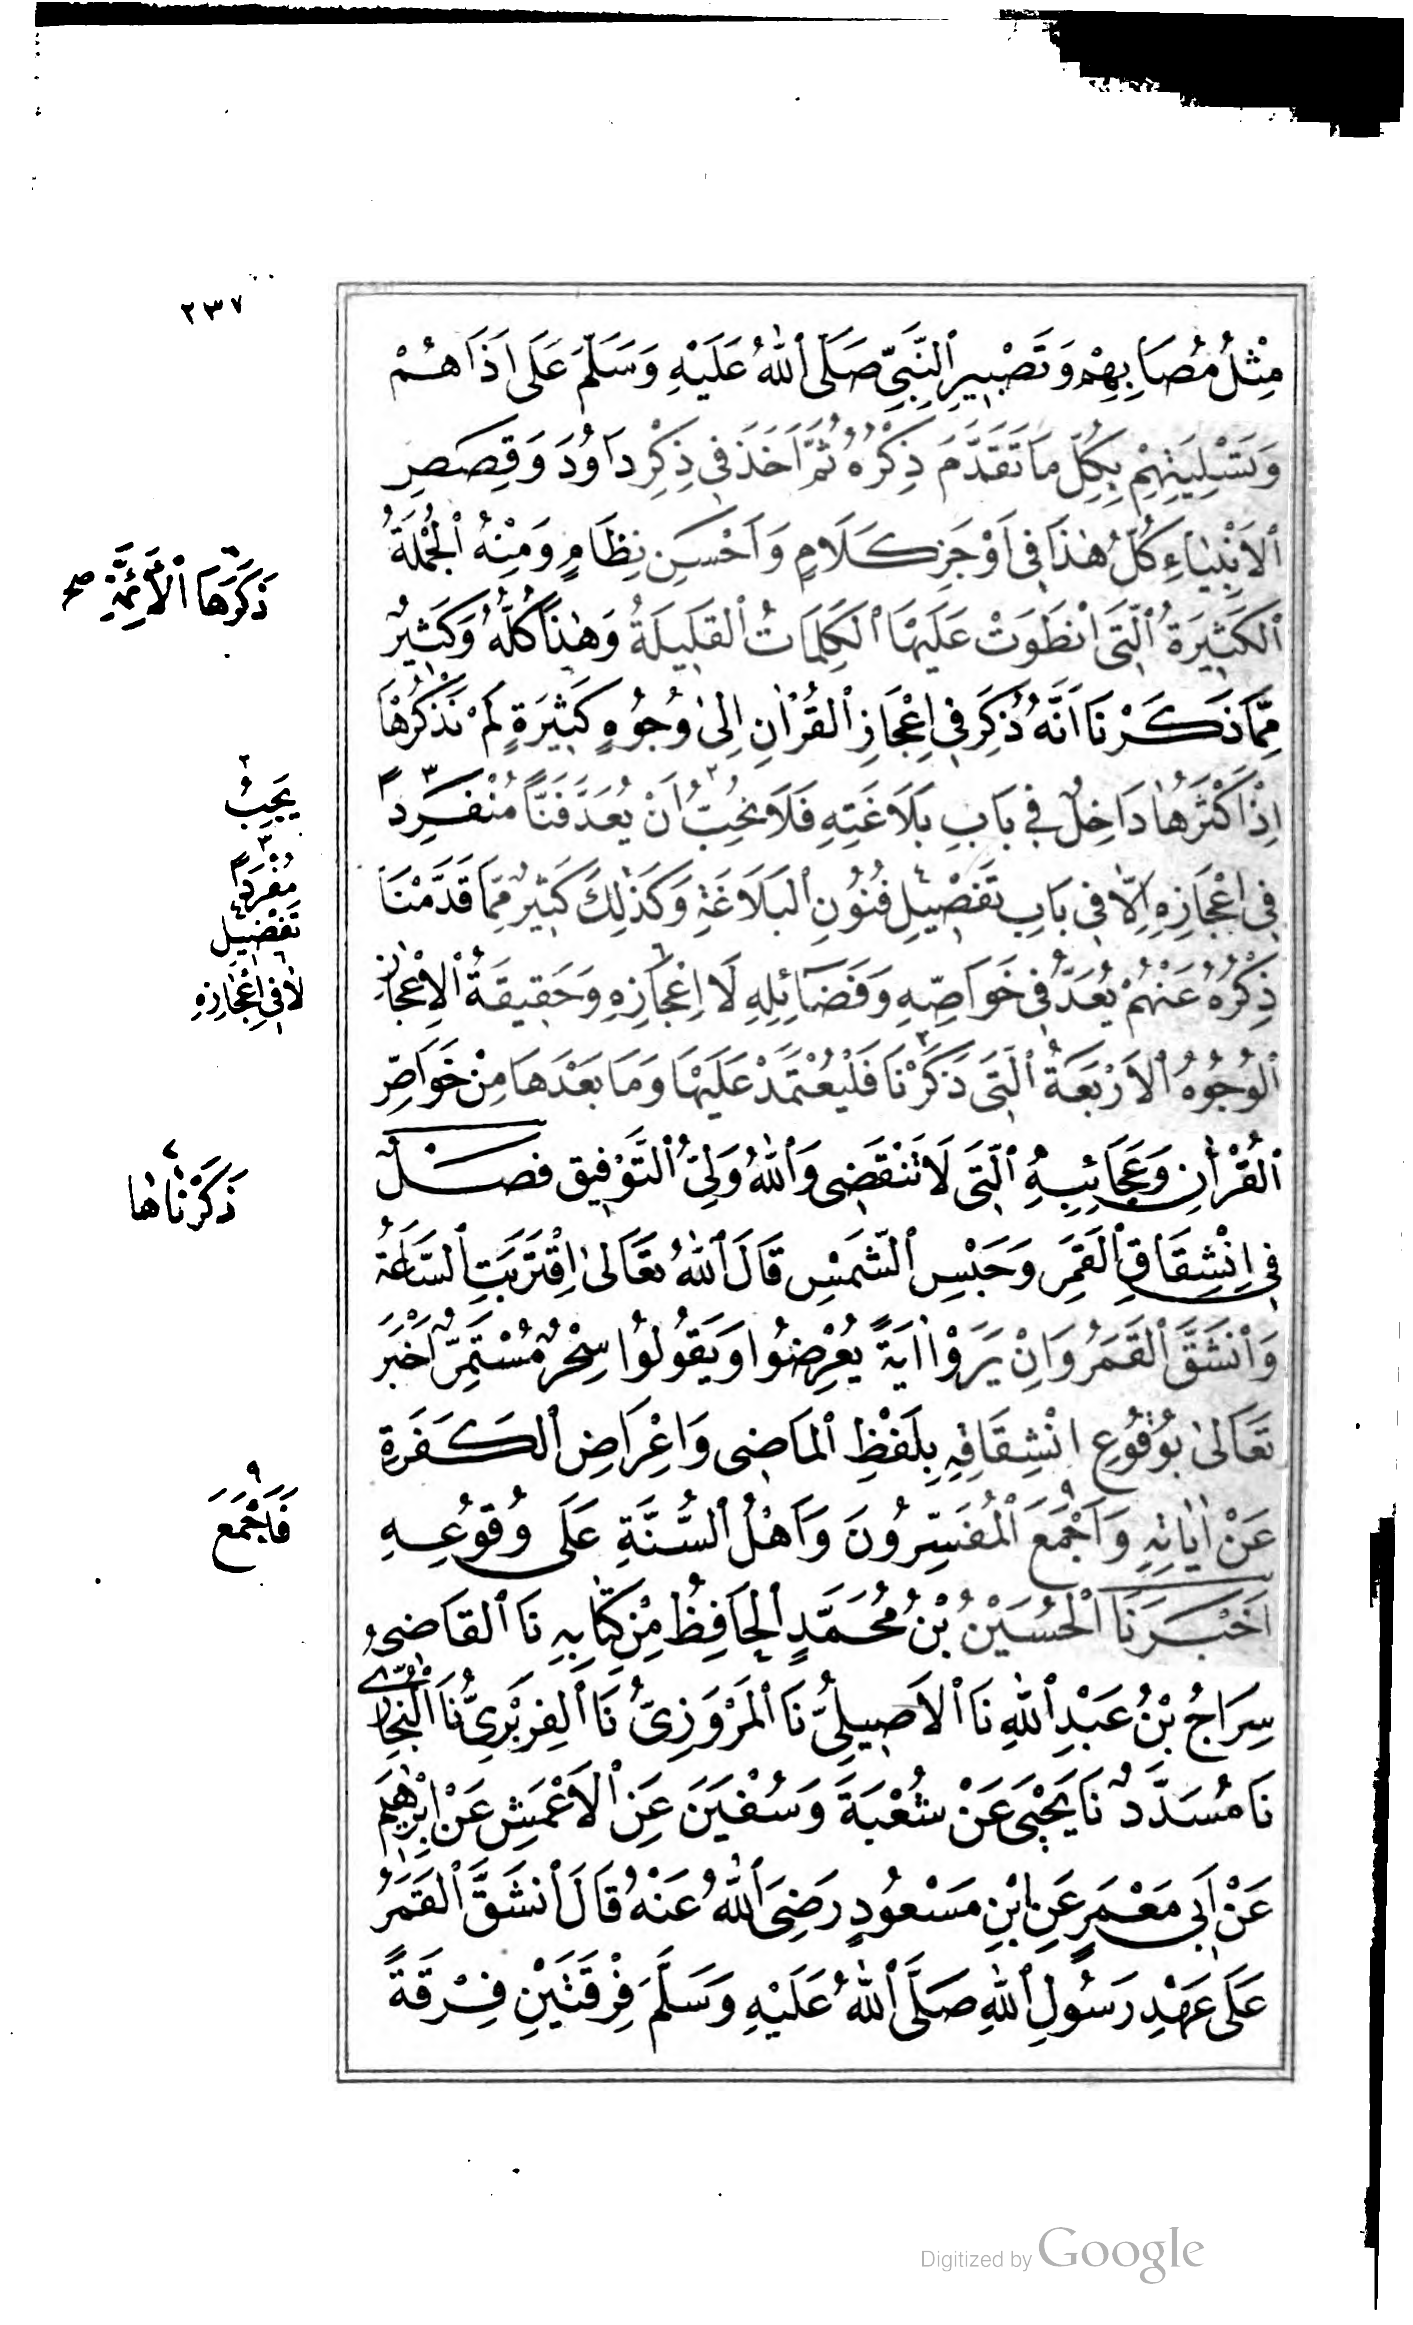 ٢٣٧
مِثْلُ مُصَابِهِمْ وَتَصْبِيرِ النَّبِيِّ صَلَّى اللهُ عَلَيْهِ وَسَلَّمَ عَلَى اَذَاهُمْ
وَتَسْلِيَتِهِمْ بِكُلِّ مَا تَقَدَّمَ ذِكْرُهُ ثُمَّ اَخَذَ فِي ذِكْرِ دَاوُدَ وَقِصَصِ
الْاَنْبِيَاءِ كُلُّ هٰذَا فِي اَوْجَزِ كَلَامٍ وَاَحْسَنِ نِظَامٍ وَمِنْهُ الْجُمْلَةُ
الْكَثِيرَةُ الَّتِي انْطَوَتْ عَلَيْهَا الْكَلِمَاتُ الْقَلِيلَةُ وَهٰذَا كُلُّهُ وَكَثِيرٌ
مِمَّا ذَكَرْنَا اَنَّهُ ذُكِرَ فِي اِعْجَازِ الْقُرْاٰنِ اِلَى وُجُوهٍ كَثِيرَةٍ لَمْ نَذْكُرْهَا
اِذْ اَكْثَرُهَا دَاخِلٌ فِي بَابِ بَلَاغَتِهِ فَلَا نُحِبُّ اَنْ يُعَدَّ فَنًّا مُنْفَرِدًا
فِي اِعْجَازِهِ اِلَّا فِي بَابِ تَفْصِيلِ فُنُونِ الْبَلَاغَةِ وَكَذٰلِكَ كَثِيرٌ مِمَّا قَدَّمْنَا
ذِكْرُهُ عَنْهُمْ يُعَدُّ فِي خَوَاصِّهِ وَفَضَائِلِهِ لَا اِعْجَازِهِ وَحَقِيقَةُ الْاِعْجَازِ
الْوُجُوهُ الْاَرْبَعَةُ الَّتِي ذَكَرْنَا فَلْيُعْتَمَدْ عَلَيْهَا وَمَا بَعْدَهَا مِنْ خَوَاصِّ
الْقُرْاٰنِ وَعَجَائِبِهِ الَّتِي لَا تَنْقَضِي وَاللهُ وَلِيُّ التَّوْفِيقِ فصــل
فِي اِنْشِقَاقِ الْقَمَرِ وَحَبْسِ الشَّمْسِ قَالَ اللهُ تَعَالٰى اِقْتَرَبَتِ السَّاعَةُ
وَانْشَقَّ الْقَمَرُ وَاِنْ يَرَوْا اٰيَةً يُعْرِضُوا وَيَقُولُوا سِحْرٌ مُسْتَمِرٌّ اَخْبَرَ
تَعَالٰى بِوُقُوعِ انْشِقَاقِهِ بِلَفْظِ الْمَاضِي وَاِعْرَاضِ الْكَفَرَةِ
عَنْ اٰيَاتِهِ وَاَجْمَعَ الْمُفَسِّرُونَ وَاَهْلُ السُّنَّةِ عَلَى وُقُوعِهِ
اَخْبَرَنَا الْحُسَيْنُ بْنُ مُحَمَّدٍ الْحَافِظُ مِنْ كِتَابِهِ نَا الْقَاضِيُ
سِرَاجُ بْنُ عَبْدِ اللهِ نَا الْاَصِيلِيُّ نَا الْمَرْوَزِيُّ نَا الْفِرَبْرِيُّ نَا الْبُخَارِيُّ
نَا مُسَدَّدٌ نَا يَحْيَى عَنْ شُعْبَةَ وَسُفْيَنَ عَنِ الْاَعْمَشِ عَنْ اِبْرٰهِيمَ
عَنْ اَبِي مَعْمَرٍ عَنِ ابْنِ مَسْعُودٍ رَضِيَ اللهُ عَنْهُ قَالَ انْشَقَّ الْقَمَرُ
عَلَى عَهْدِ رَسُولِ اللهِ صَلَّى اللهُ عَلَيْهِ وَسَلَّمَ فِرْقَتَيْنِ فِرْقَةً
ذَكَرَهَا الْاَئِمَّةِ صح
٢
يَجِبُ
٣
مُفْرَدًا
٤
تَفْضِيلِ
٦
لَا فِي اِعْجَازِهِ
٧
ذَكَرْنَاهَا
٩
فَاَجْمَعَ
Digitized by Google